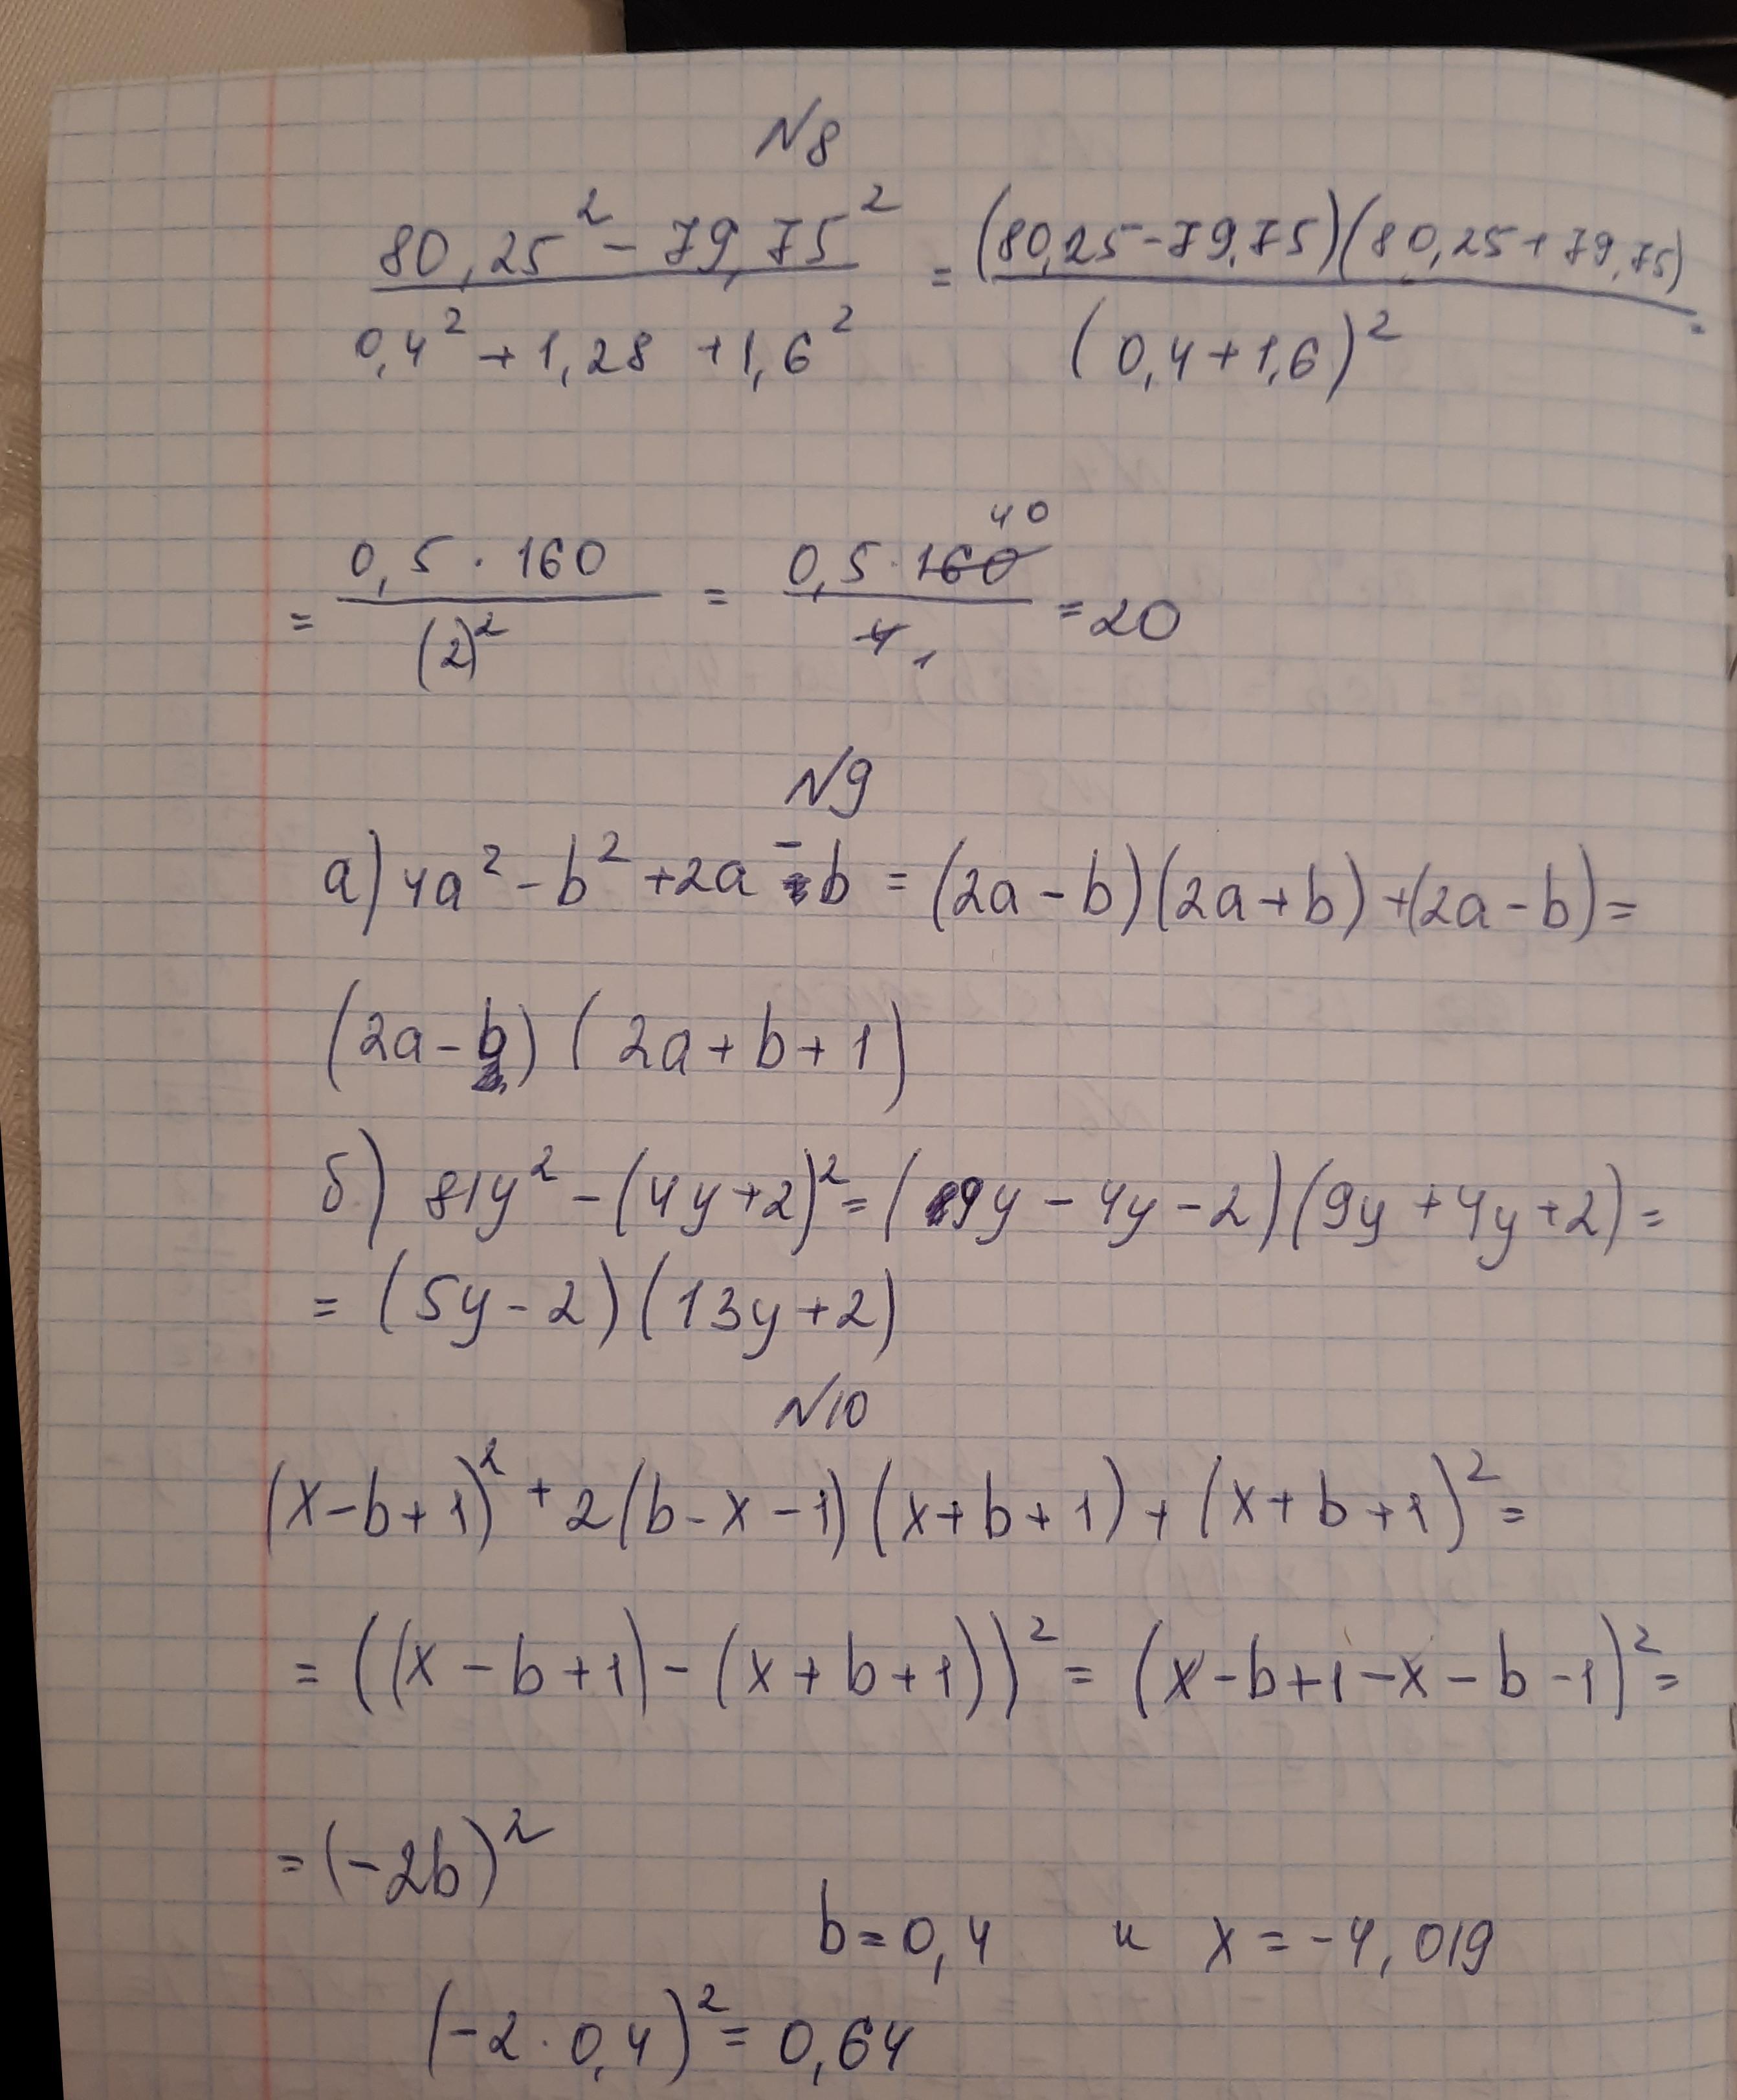 N8
80,25² - 79,75² / 0,4² + 1,28 + 1,6² = (80,25-79,75)(80,25+79,75) / (0,4+1,6)² =
= 0,5 · 160 / (2)² = 0,5 · 160 40 / 4 1 = 20
N9
а) 4a² - b² + 2a - b = (2a - b)(2a + b) + (2a - b) =
(2a - b) (2a + b + 1)
б) 81y² - (4y+2)² = (9y - 4y - 2)(9y + 4y + 2) =
= (5y - 2)(13y + 2)
N10
(x - b + 1)² + 2(b - x - 1)(x + b + 1) + (x + b + 1)² =
= ((x - b + 1) - (x + b + 1))² = (x - b + 1 - x - b - 1)² =
= (-2b)²
b = 0,4 и x = -4,019
(-2 · 0,4)² = 0,64